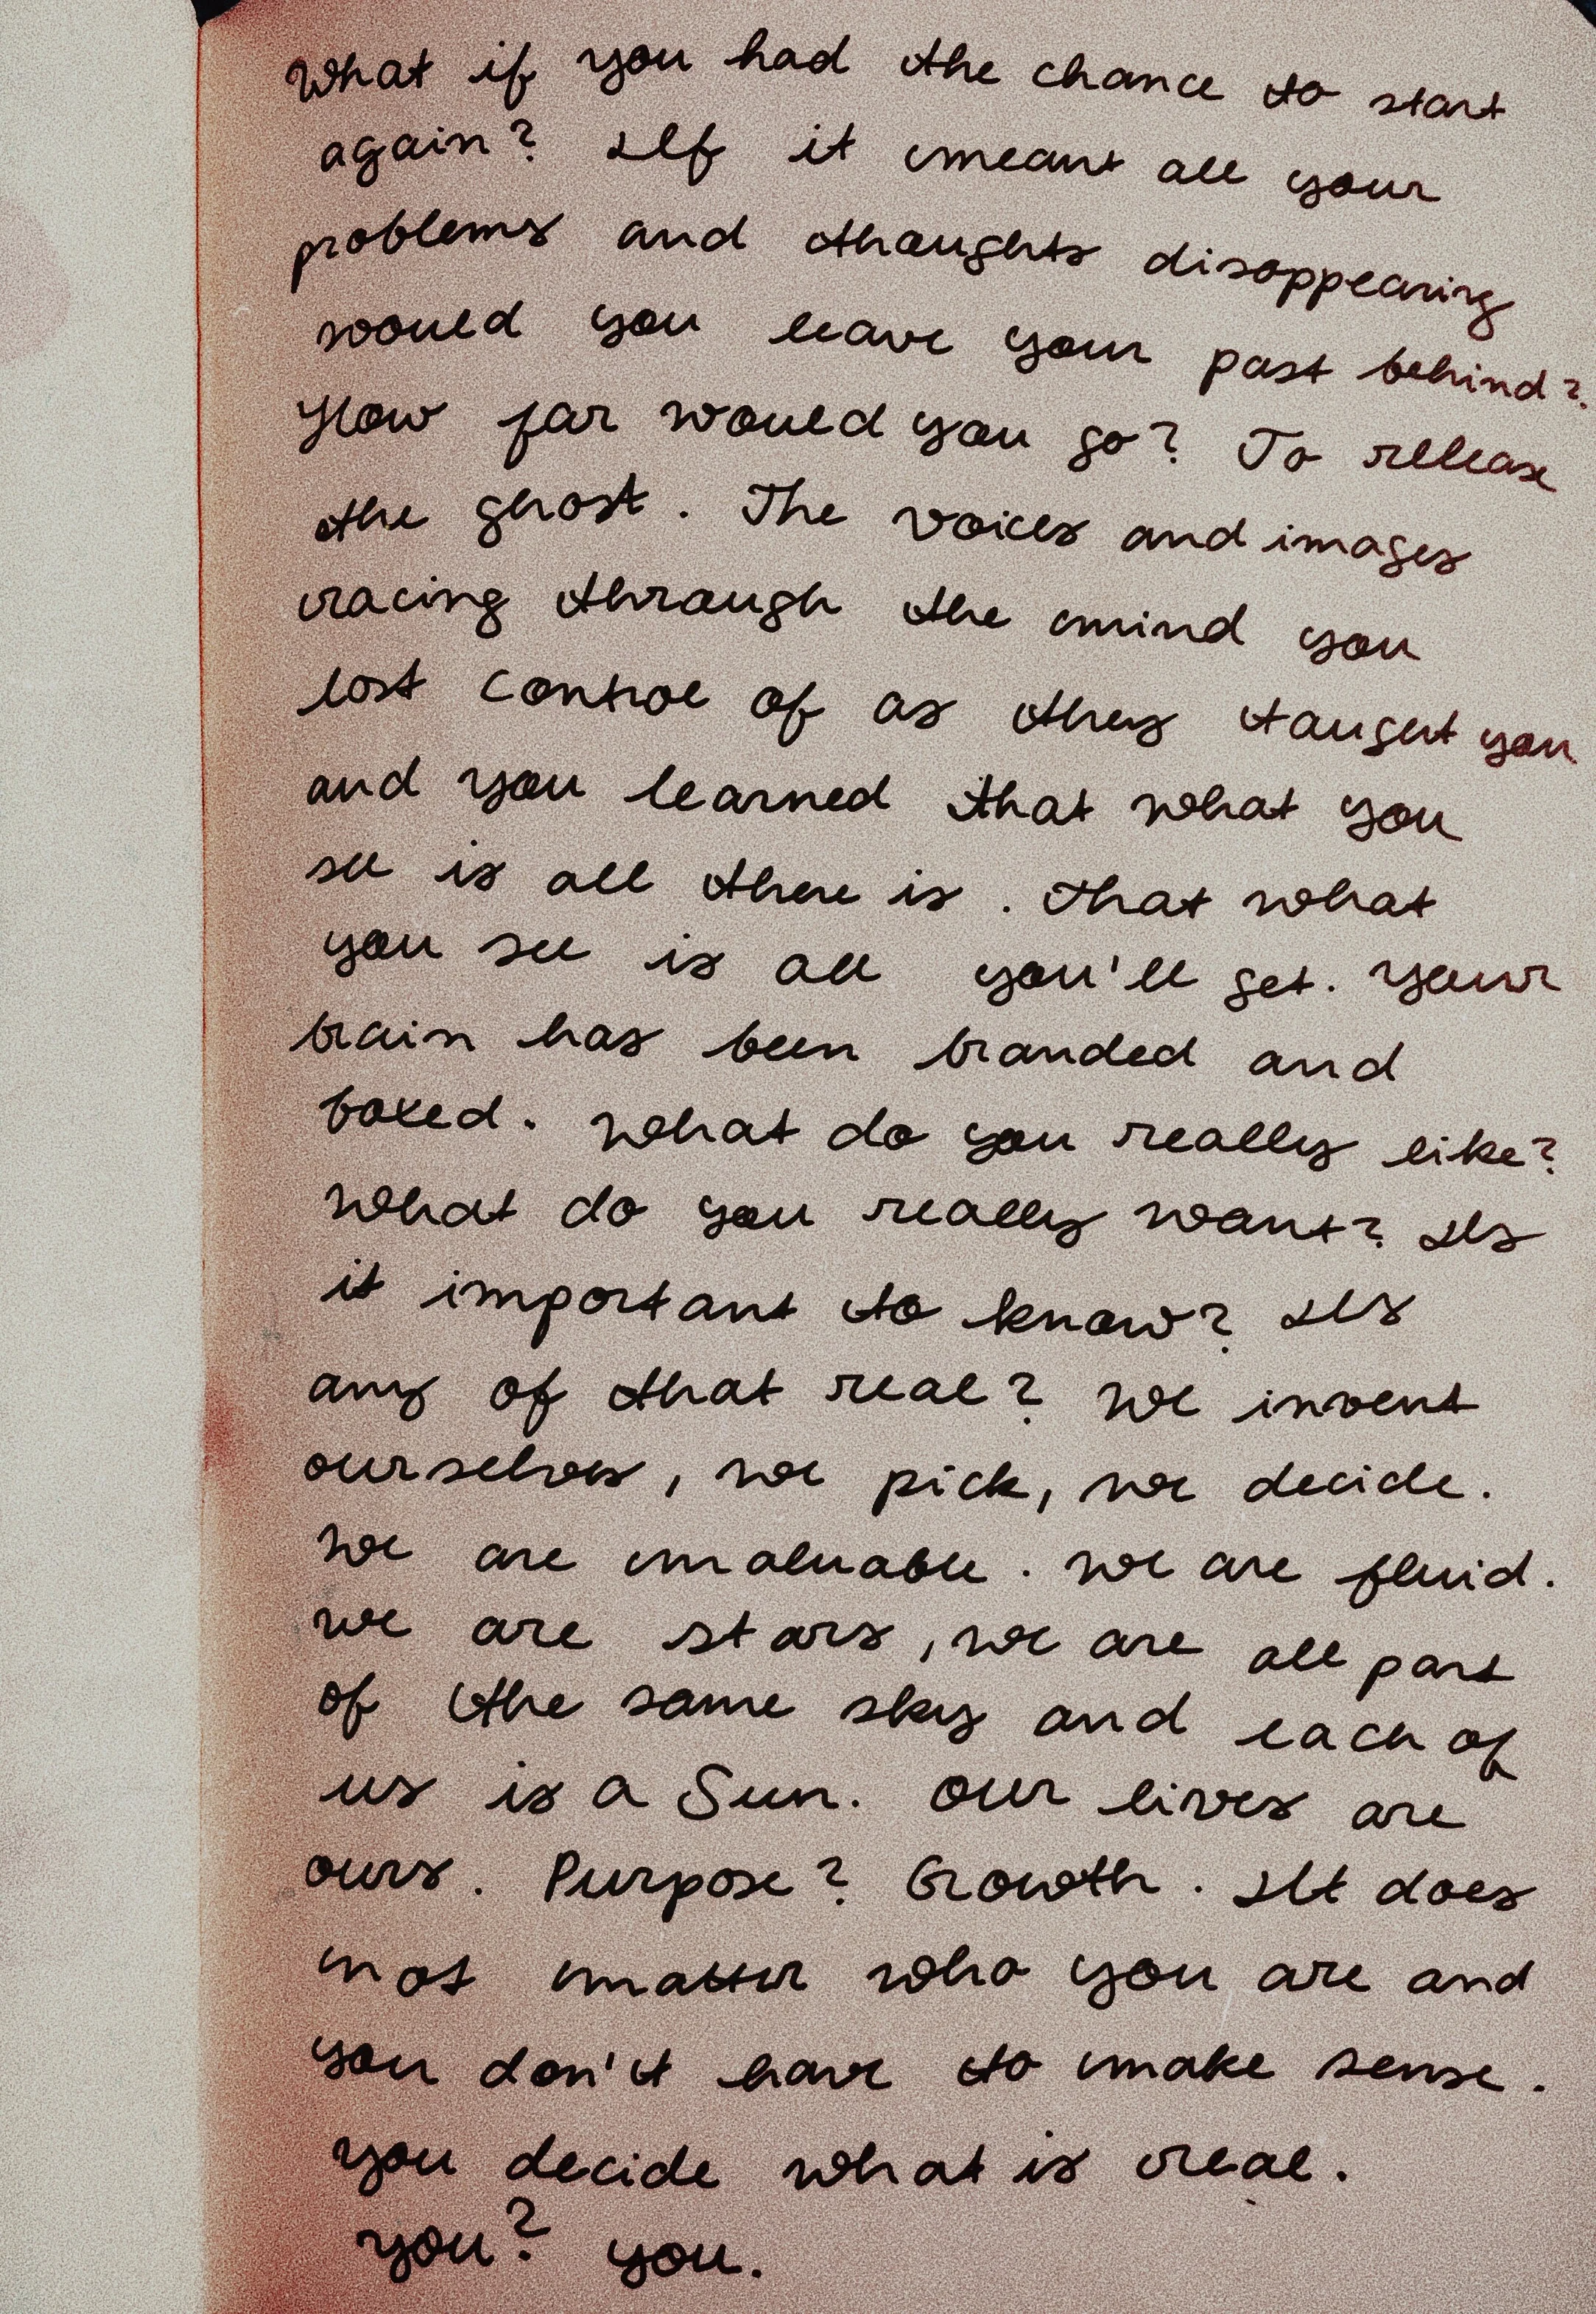 What if you had the chance to start
again? If it meant all your
problems and thoughts disappearing
would you leave your past behind?
How far would you go? To release
the ghost. The voices and images
racing through the mind you
lost control of as they taught you
and you learned that what you
see is all there is. That what
you see is all you'll get. Your
brain has been branded and
boxed. What do you really like?
What do you really want? Is
it important to know? Is
any of that real? We invent
ourselves, we pick, we decide.
We are malleable. We are fluid.
We are stars, we are all part
of the same sky and each of
us is a Sun. Our lives are
ours. Purpose? Growth. It does
not matter who you are and
you don't have to make sense.
You decide what is real.
You? You.